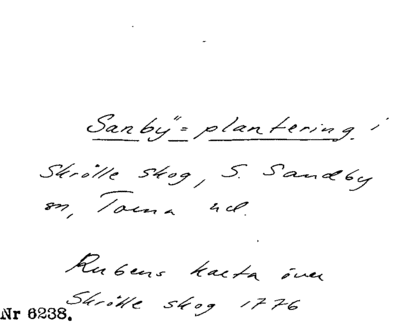 Sanby"= plantering i
Skrölle skog, S. Sandby
sn, Torna hd.
Rubens karta över
Skrölle skog 1776
Nr 6238.